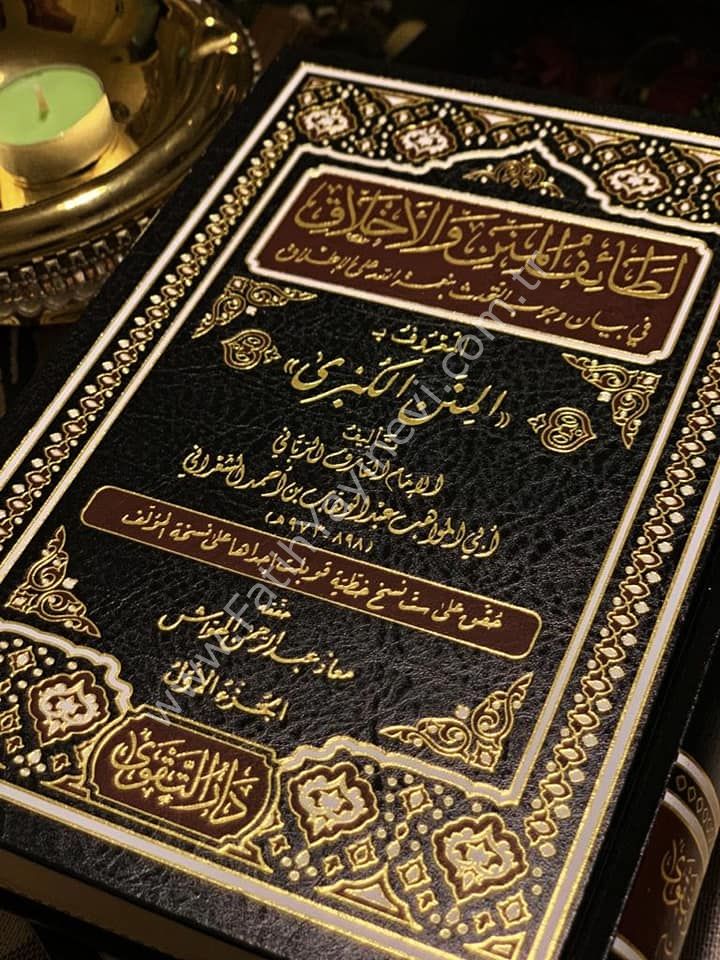 لَطَائِفُ المِنَنِ وَالأَخْلَاقِ
في بيان وجوب التحدث بنعمة الله على الإطلاق
المعروف بـ
«المِنَنِ الكُبْرَى»
تأليف
الإمام العارف الرباني
أبي المواهب عبد الوهاب بن أحمد الشعراني
(٨٩٨-٩٧٣هـ)
حقق على ست نسخ خطية قوبلت إحداها على نسخة المؤلف
حققه
معاذ عبد الرحمن
الجزء الأول
دار التقوى
www.FatihYayinevi.com.tr